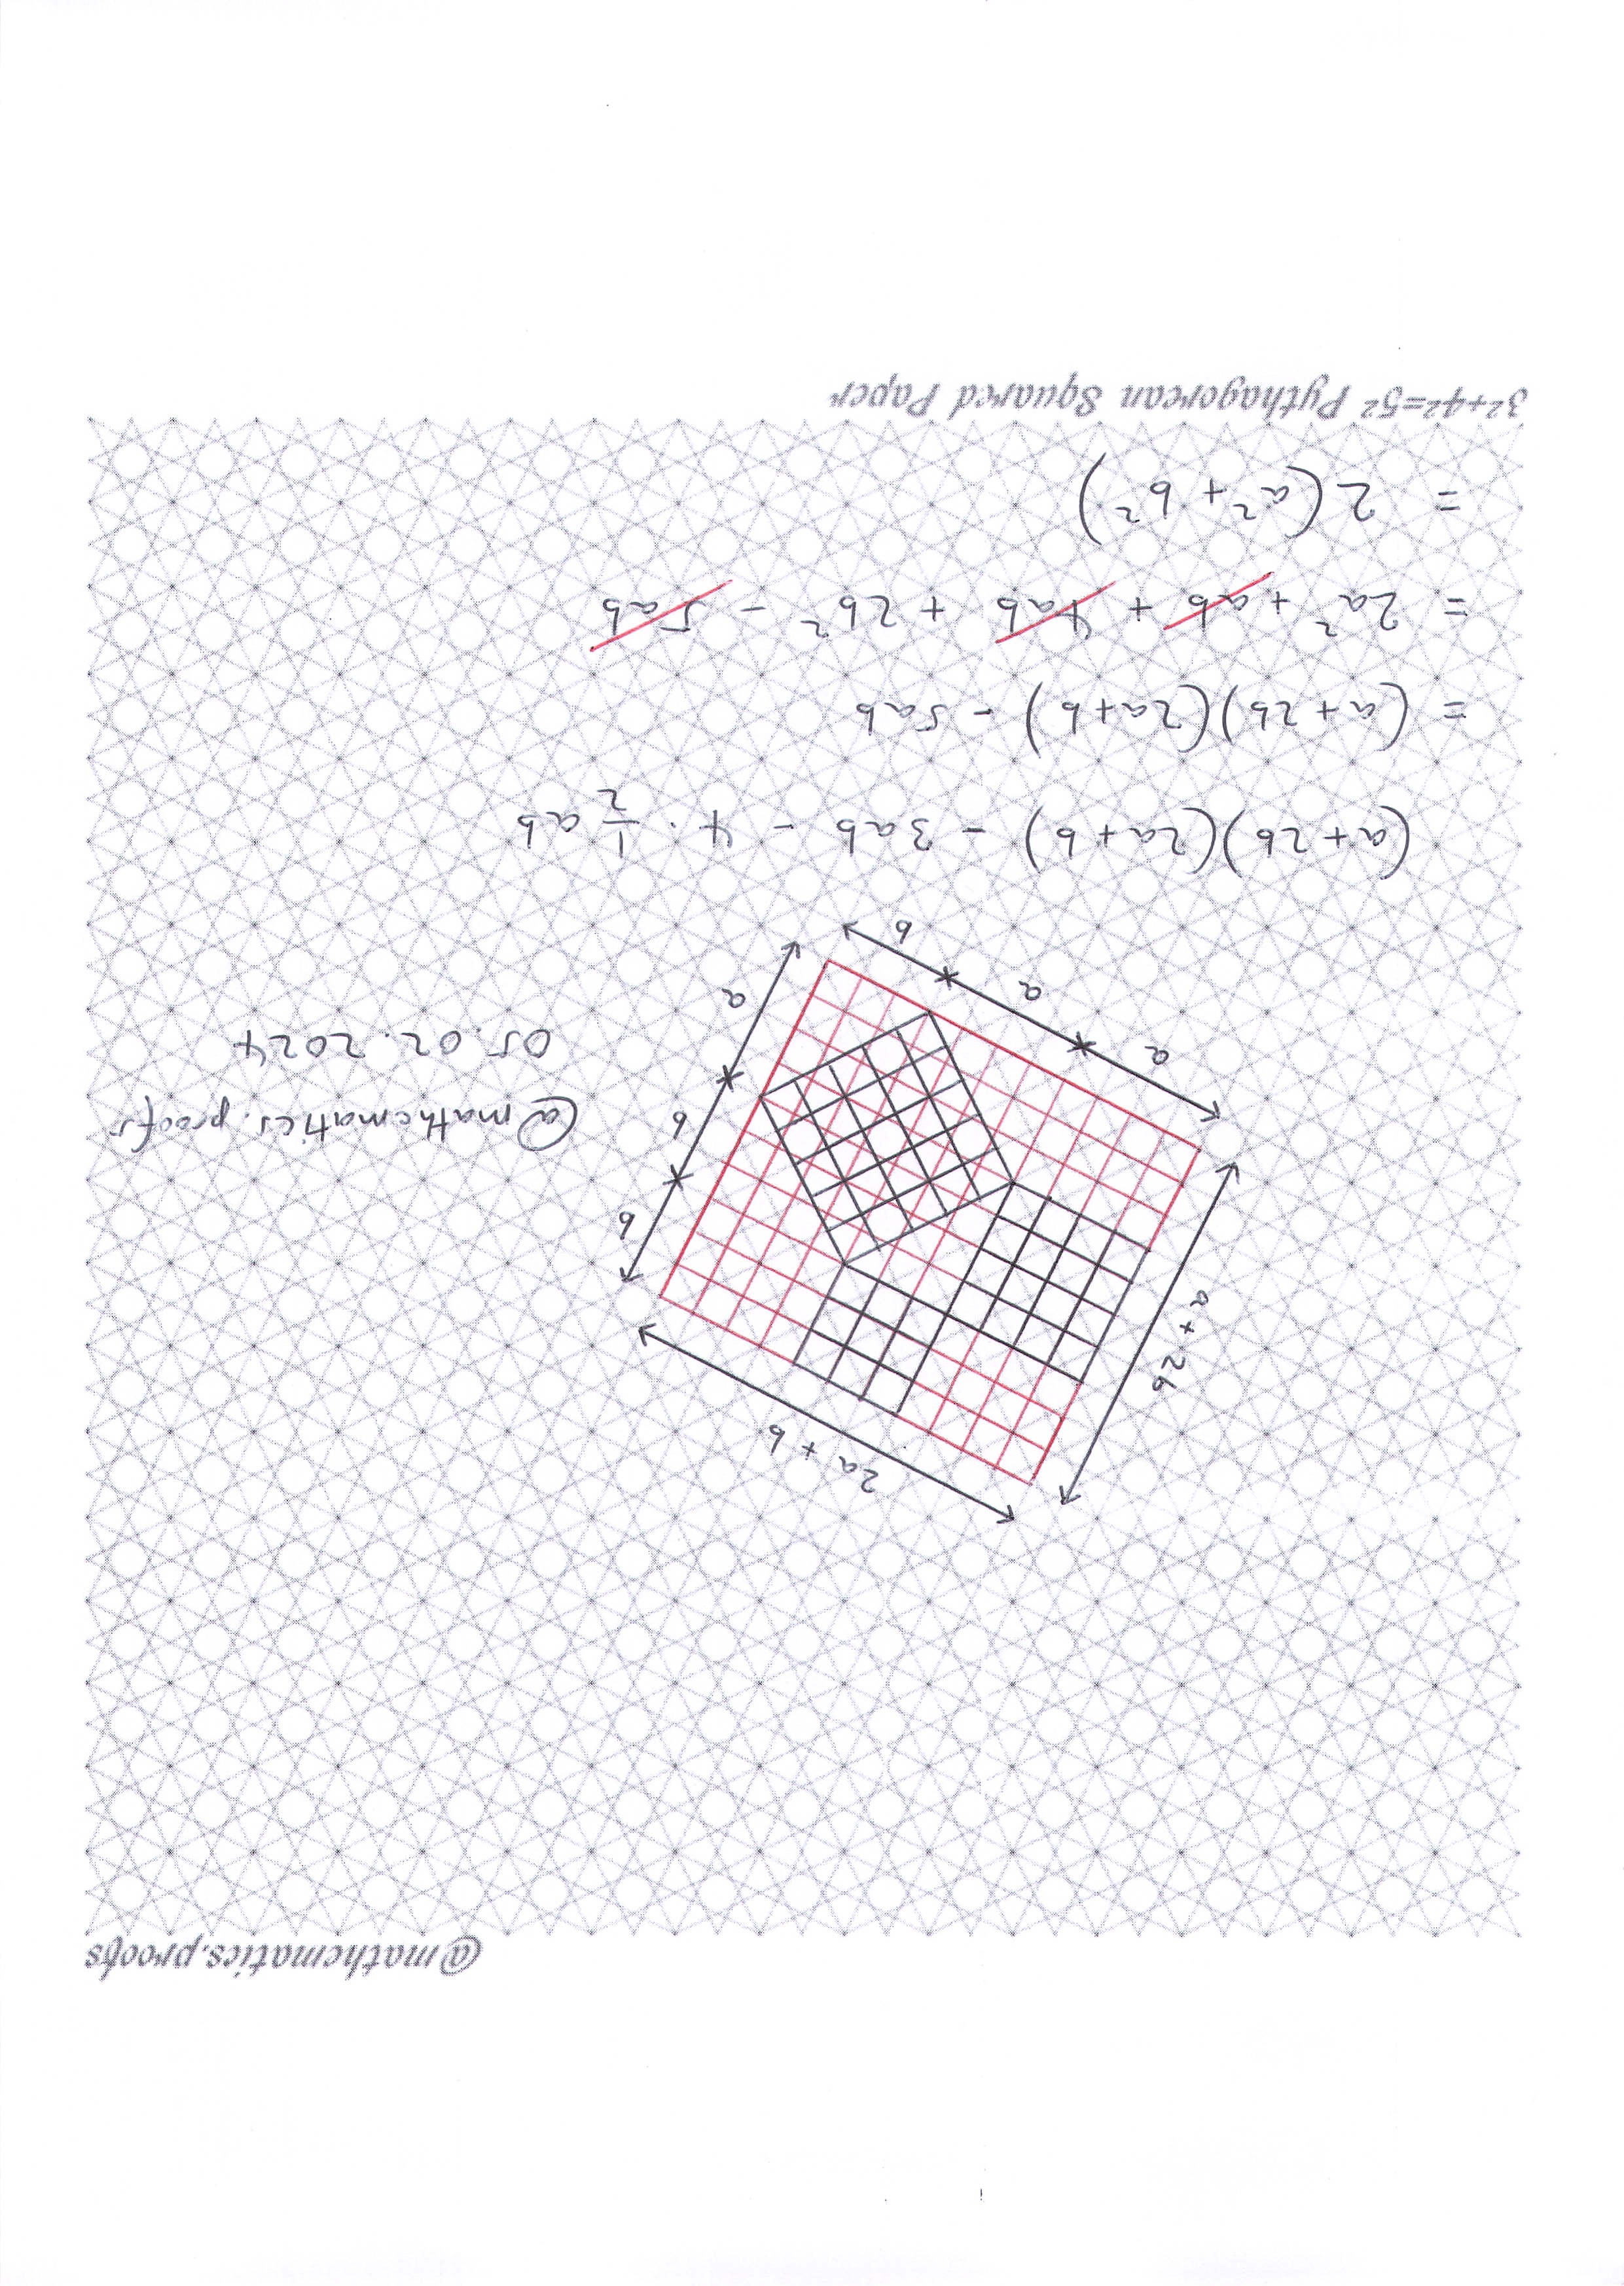 @mathematics.proofs
2a + b
a + 2b
b
b
@mathematics.proofs
05.02.2024
a
a
a
b
(a+2b)(2a+b) - 3ab - 4 · 1/2 ab
= (a+2b)(2a+b) - 5ab
= 2a² + ab + 4ab + 2b² - 5ab
= 2(a² + b²)
3²+4²=5² Pythagorean Squared Paper